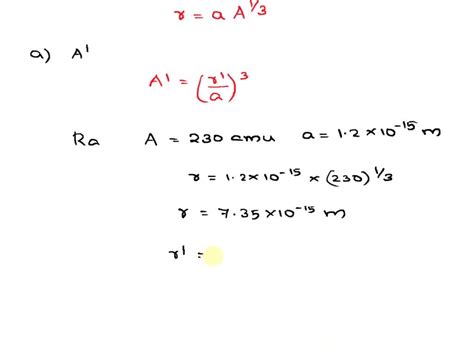 r = a A^1/3
a) A'
A' = (r'/a)^3
Ra A = 230 amu a = 1.2 × 10^-15 m
r = 1.2 × 10^-15 × (230)^1/3
r = 7.35 × 10^-15 m
r' =